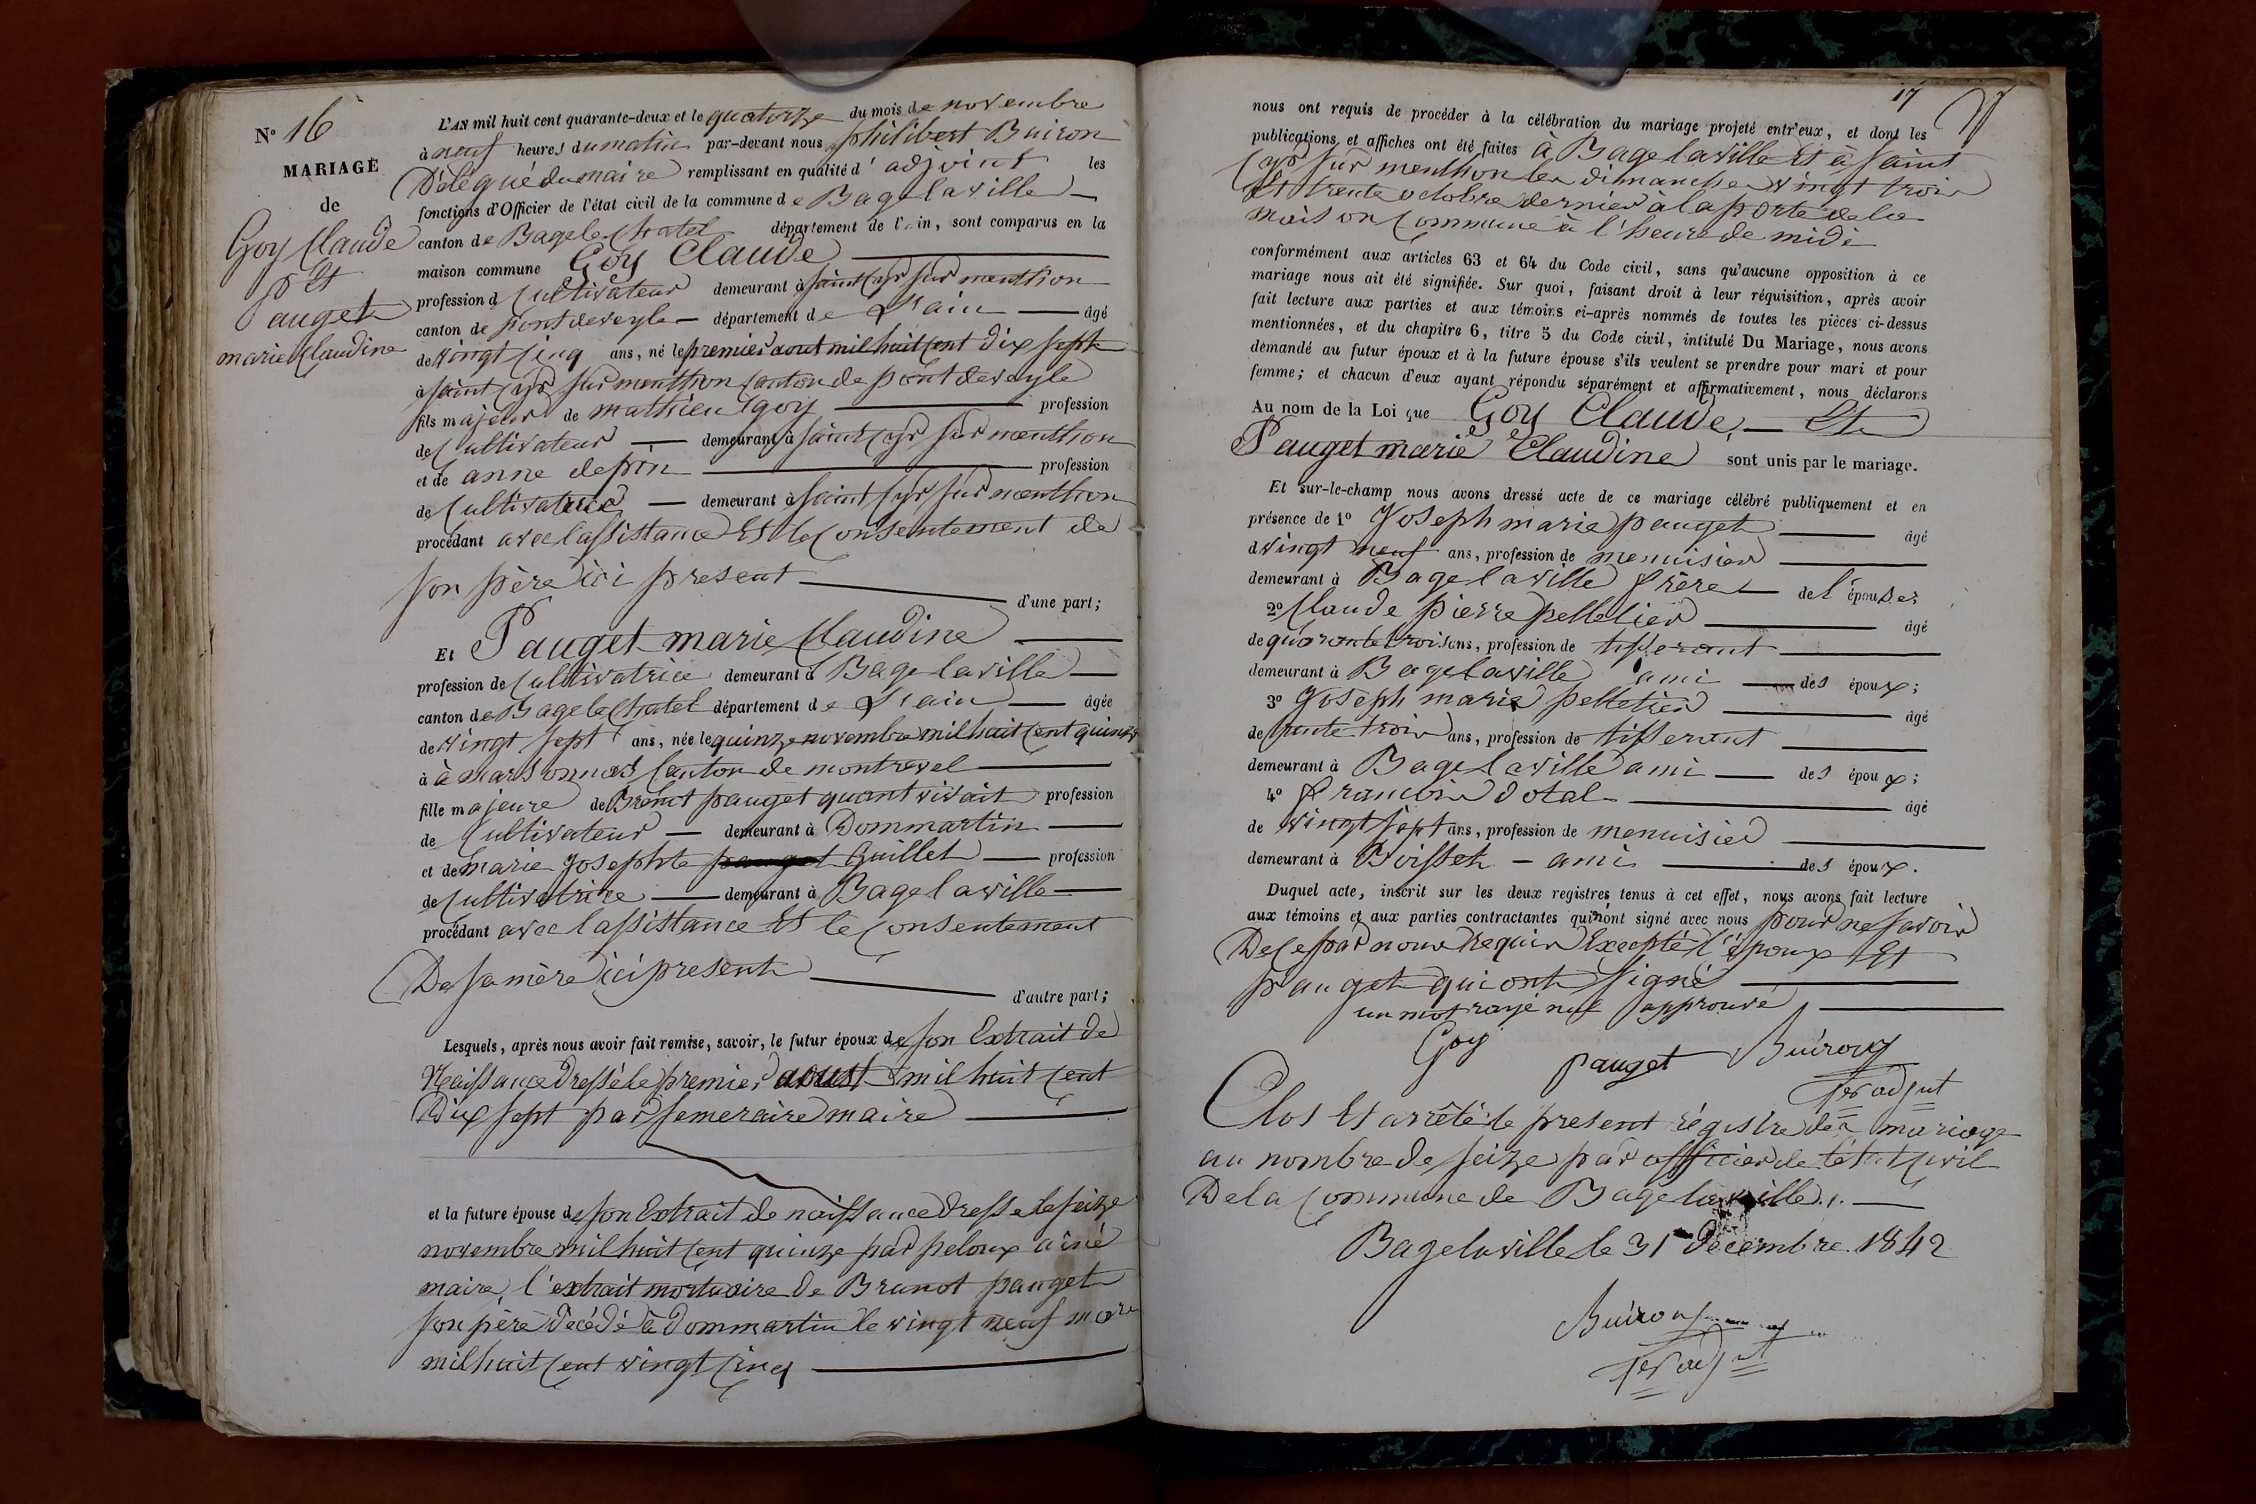 N° 16
MARIAGE
de
Goy Claude
Et
pauget
marie Claudine
L'AN mil huit cent quarante-deux et le quatorze du mois de novembre
à neuf heures du matin par-devant nous philibert Buiron
Délégué du maire remplissant en qualité d'adjoint les
fonctions d'Officier de l'état civil de la commune de Bagelaville
canton de Bagelechatel département de l'Ain, sont comparus en la
maison commune Goy Claude
profession d Cultivateur demeurant à saint Cyr sur menthion
canton de pontdeveyle département de L'ain âgé
de vingt Cinq ans, né le premier aout mil huit Cent Dix sept
à saint Cyr sur menthion Canton de pontdeveyle
fils majeur de mathieu Goy profession
de Cultivateur demeurant à saint Cyr sur menthion
et de anne depin profession
de Cultivatrice demeurant à saint Cyr sur menthion
procédant avec lassistance Et le Consentement de
son père ici present
d'une part;
Et Pauget marie Claudine
profession de Cultivatrice demeurant à Bagelaville
canton de Bagelechatel département de L'ain âgée
de vingt sept ans, née le quinze novembre mil huit Cent quinze
à à marsonnas Canton de montrevel
fille majeure de Brunot pauget quant vivait profession
de Cultivateur demeurant à Dommartin
et de marie Josephte pauget Guillet profession
de Cultivatrice demeurant à Bagelaville
procédant avec lassistance Et le Consentement
De sa mère ici present
d'autre part;
Lesquels, après nous avoir fait remise, savoir, le futur époux de son Extrait de
Naissance Dressé le premier aoust mil huit Cent
Dix sept par semeraire maire
et la future épouse de son Extrait de naissance dresse le seize
novembre mil huit Cent quinze par peloux ainé
maire, l'extrait mortuaire de Brunot pauget
son père décédé à Dommartin le vingt neuf mars
mil huit Cent vingt Cinq
17
nous ont requis de procéder à la célébration du mariage projeté entr'eux, et dont les
publications et affiches ont été faites à Bagelaville Et à saint
Cyr sur menthion les dimanches vingt trois
Et trente octobre dernier a la porte de la
maison Commune à l'heure de midi
conformément aux articles 63 et 64 du Code civil, sans qu'aucune opposition à ce
mariage nous ait été signifiée. Sur quoi, faisant droit à leur réquisition, après avoir
fait lecture aux parties et aux témoins ci-après nommés de toutes les pièces ci-dessus
mentionnées, et du chapitre 6, titre 5 du Code civil, intitulé Du Mariage, nous avons
demandé au futur époux et à la future épouse s'ils veulent se prendre pour mari et pour
femme; et chacun d'eux ayant répondu séparément et affirmativement, nous déclarons
Au nom de la Loi que Goy Claude Et
Pauget marie Claudine sont unis par le mariage.
Et sur-le-champ nous avons dressé acte de ce mariage célébré publiquement et en
présence de 1° Joseph marie pauget âgé
d vingt neuf ans, profession de menuisier
demeurant à Bagelaville frère de l'épouse;
2° Claude pierre pelletier âgé
de quarante trois ans, profession de tisserant
demeurant à Bagelaville ami des époux;
3° Joseph marie pelletier âgé
de trente trois ans, profession de tisserant
demeurant à Bagelaville ami des époux;
4° francois dotal âgé
de vingt sept ans, profession de menuisier
demeurant à Boisset - ami des époux.
Duquel acte, inscrit sur les deux registres tenus à cet effet, nous avons fait lecture
aux témoins et aux parties contractantes qui n'ont signé avec nous pour ne savoir
De Ce par nous requis Excepté l'époux Et
pauget qui ont signé
un mot rayé nul approuvé
Goy
pauget
Buiron
1er adjnt
Clos Et arrêté le present régistre de mariage
au nombre de seize par officier de létat Civil
De la Commune de Bagelaville.
Bagelaville le 31 Décembre 1842
Buiron
1er adjnt